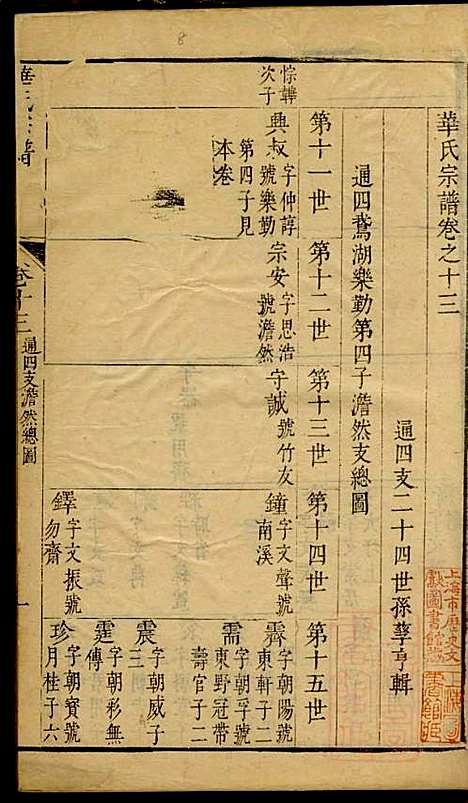 華氏宗譜卷之十三
通四支二十四世孫孳亨輯
通四鵞湖樂勤第四子澹然支總圖
第十一世
第十二世
第十三世
第十四世
第十五世
悰韡
次子
興叔
字仲諄
號樂勤
第四子見
本卷
宗安
字思浩
號澹然
守誠
號竹友
鐘
字文聲號
南溪
霽
字朝陽號
東軒子二
需
字朝孚號
東野冠帶
壽官子二
震
字朝威子
三
鐸
字文振號
勿齋
霆
字朝彩無
傳
珍
字朝寳號
月桂子六
華氏宗譜
卷十三
通四支澹然總圖
一
上海市歷史文
獻圖書館藏
8